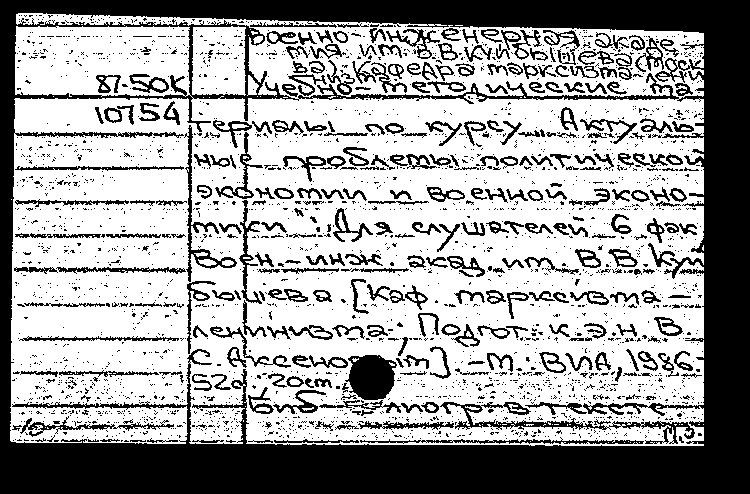 Военно-инженерная акаде-
мия им. В.В. Куйбышева (Моск
ва). Кафедра марксизма-лени
низма
87-50К Учебно-методические ма-
10754
териалы по курсу „Акту­аль-
ные проблемы политической
экономии и военной эконо-
мики": Для слушателей 6 фак.
Воен.-инж. акад. им. В.В. Куй
бышева. [Каф. марксизма-
ленинизма; Подгот. к.э.н. В.
С Аксеновым]. -М.: ВИА, 1986.-
52с.; 20см.
Библиогр. в тексте.
10
М.З.